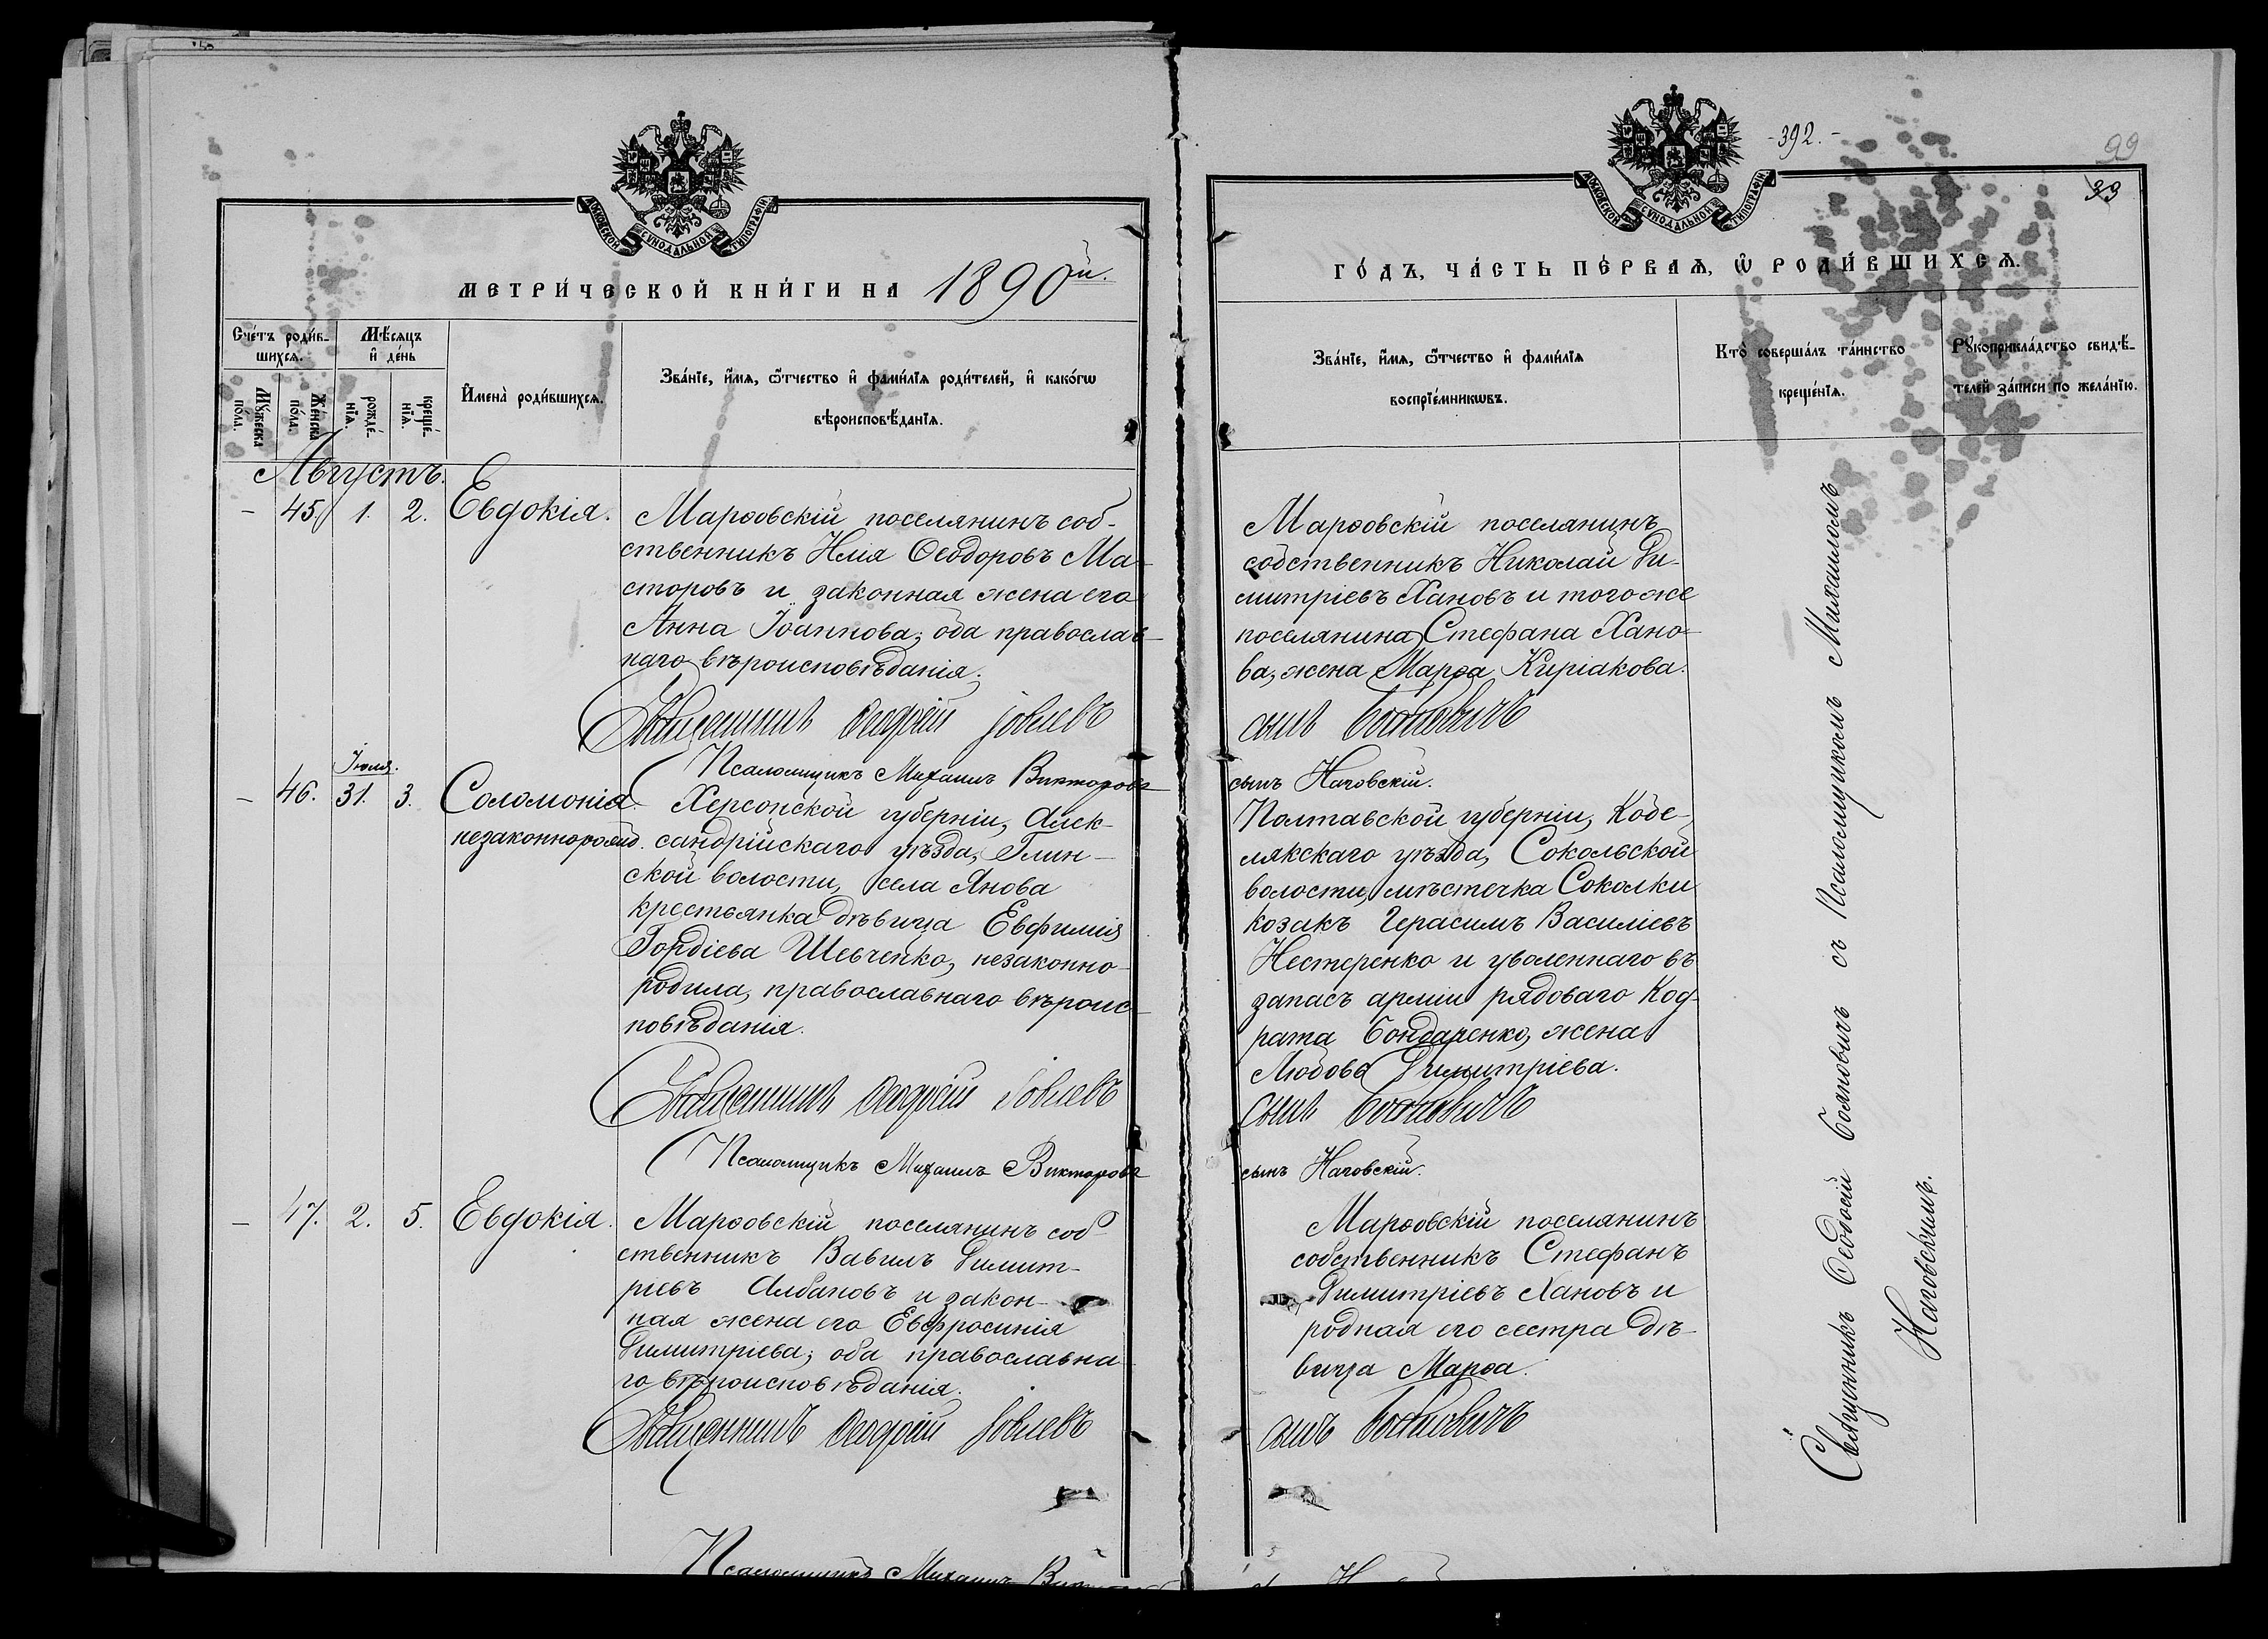 МОСКОВСКОЙ СѴНОДАЛЬНОЙ ТИПОГРАФІИ
МЕТРИ́ЧЕСКОЙ КНИ́ГИ НА 1890й.
Сче́тъ роди́в-
шихсѧ.
Мѣ́сѧцъ
и҆ де́нь
Мꙋ́жеска
по́ла.
Же́нска
по́ла.
рожде́-
нїѧ.
креще́-
нїѧ.
И҆мена̀ роди́вшихсѧ.
Зва́нїе, и҆́мѧ, ѻ҆́тчество и҆ фами́лїѧ роди́телей, и҆ како́гѡ
вѣроисповѣ́данїѧ.
Августъ.
- 45. 1. 2. Евдокія.
Марѳовскій поселянинъ соб-
ственникъ Илія Ѳеодоровъ Ма-
сторовъ и законная жена его
Анна Іоаннова; оба православ-
наго вѣроисповѣданія.
Священникъ Ѳеодосій Іовлевъ
Псаломщикъ Михаилъ Викторовъ
Іюля.
- 46. 31. 3. Соломонія
незаконнорожд.
Херсонской губерніи, Алек-
сандрійскаго уѣзда, Глин-
ской волости, села Янова
крестьянка дѣвица Евфимія
Гордіева Шевченко, незаконно-
родила, православнаго вѣроис-
повѣданія.
Священникъ Ѳеодосій Іовлевъ
Псаломщикъ Михаилъ Викторовъ
- 47. 2. 5. Евдокія.
Марѳовскій поселянинъ соб-
ственникъ Вавилъ Димит-
ріевъ Албановъ и закон-
ная жена его Евфросинія
Димитріева; оба православна-
го вѣроисповѣданія.
Священникъ Ѳеодосій Іовлевъ
Псаломщикъ Михаилъ
-392.-
99
33
МОСКОВСКОЙ СѴНОДАЛЬНОЙ ТИПОГРАФІИ
ГО́ДЪ, ЧА́СТЬ ПЕ́РВАѦ, Ѡ҆ РОДИ́ВШИХСѦ.
Зва́нїе, и҆́мѧ, ѻ҆́тчество и҆ фами́лїѧ
воспрїе́мникѡвъ.
Кто̀ соверша́лъ та́инство
креще́нїѧ.
Рꙋкоприкла́дство свидѣ́-
телей за́писи по жела́нїю.
Марѳовскій поселянинъ
собственникъ Николай Ди-
митріевъ Хановъ и того же
поселянина Стефана Хано-
ва, жена Марѳа Киріакова.
сынъ Бояновичъ
сынъ Наговскій.
Полтавской губерніи, Кобе-
лякскаго уѣзда, Сокольской
волости, мѣстечка Соколки
козакъ Герасимъ Василіевъ
Нестеренко и уволеннаго въ
запасъ арміи рядоваго Код-
рата Бондаренко, жена
Любовь Димитріева.
сынъ Бояновичъ
сынъ Наговскій.
Марѳовскій поселянинъ
собственникъ Стефанъ
Димитріевъ Хановъ и
родная его сестра дѣ-
вица Марѳа.
сынъ Бояновичъ
Священникъ Ѳеодосій Бояновичъ съ Псаломщикомъ Михаиломъ
Наговскимъ.